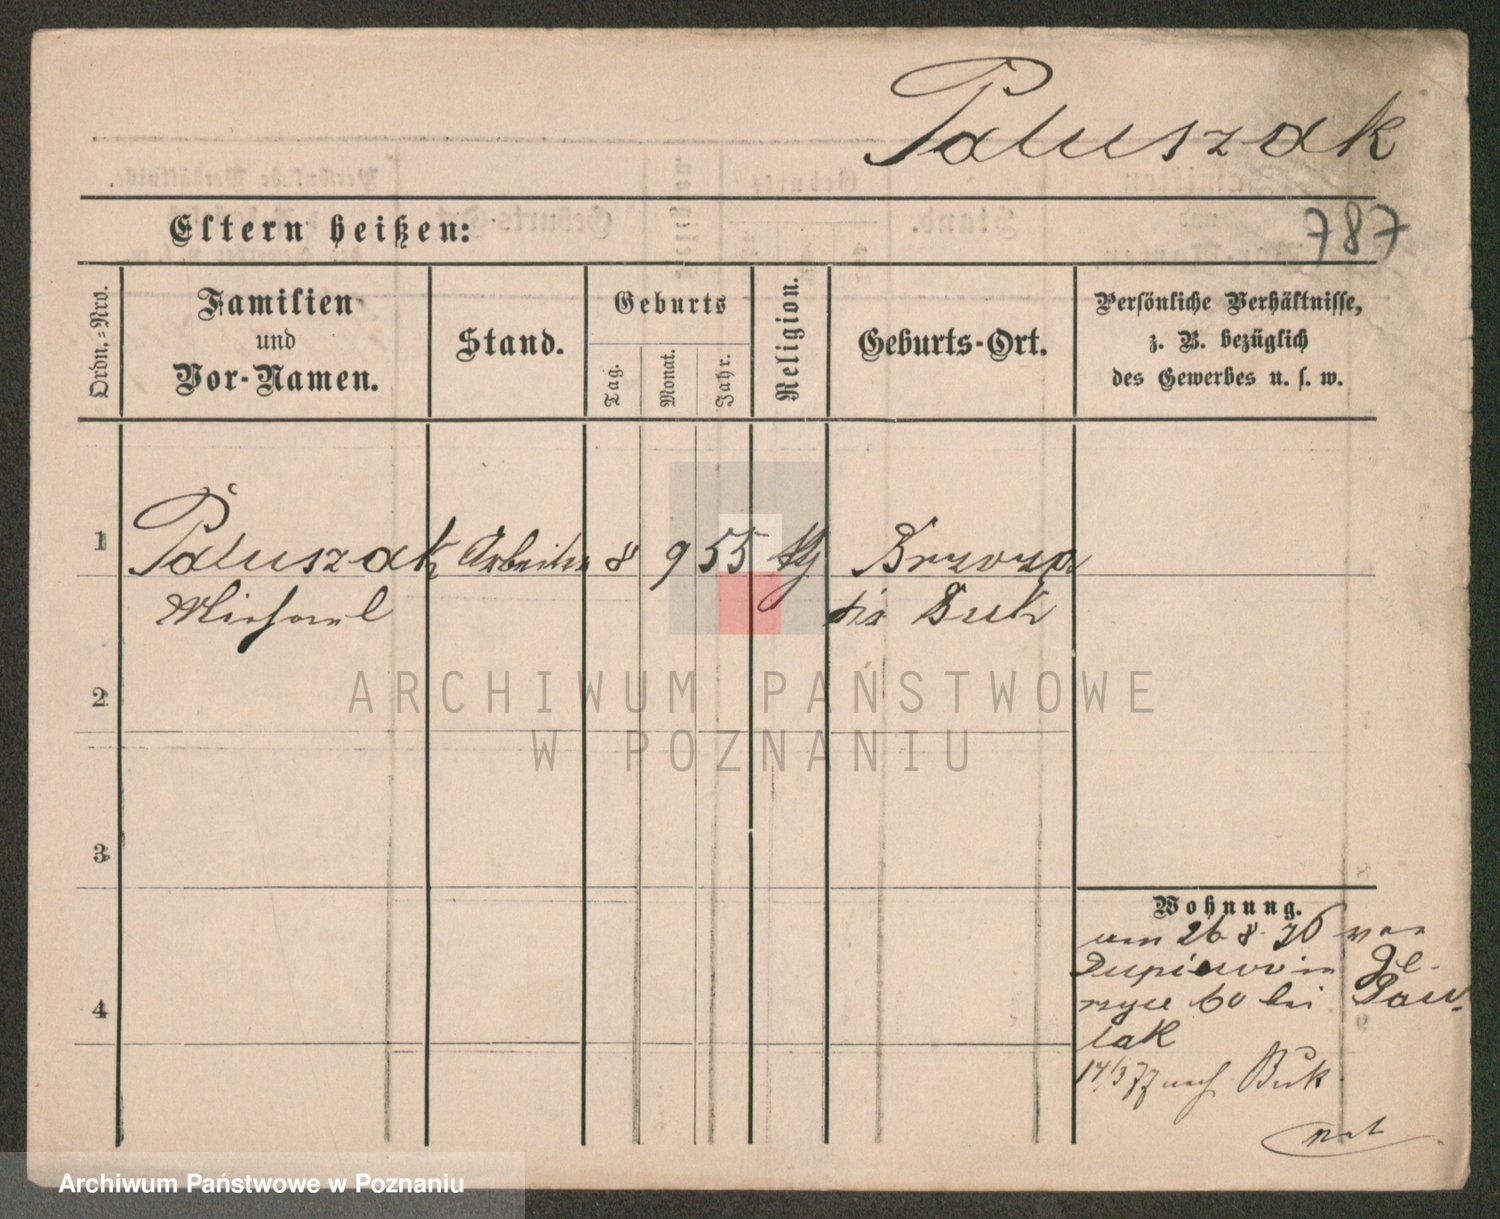 Paluszak
787
Eltern heißen:
Ordn.=Nro.
Familien
und
Vor-Namen.
Stand.
Geburts
Tag.
Monat.
Jahr.
Religion.
Geburts-Ort.
Persönliche Verhältnisse,
z. B. bezüglich
des Gewerbes u. s. w.
1
Paluszak Arbeiter 8 9 55 Brzoza
Michael bei Buk
2
3
4
Wohnung.
26 8. 76 von
in Je-
rzyce 60 bei Paw-
lak
14/3 77 nach Buk
ARCHIWUM PAŃSTWOWE
W POZNANIU
Archiwum Państwowe w Poznaniu